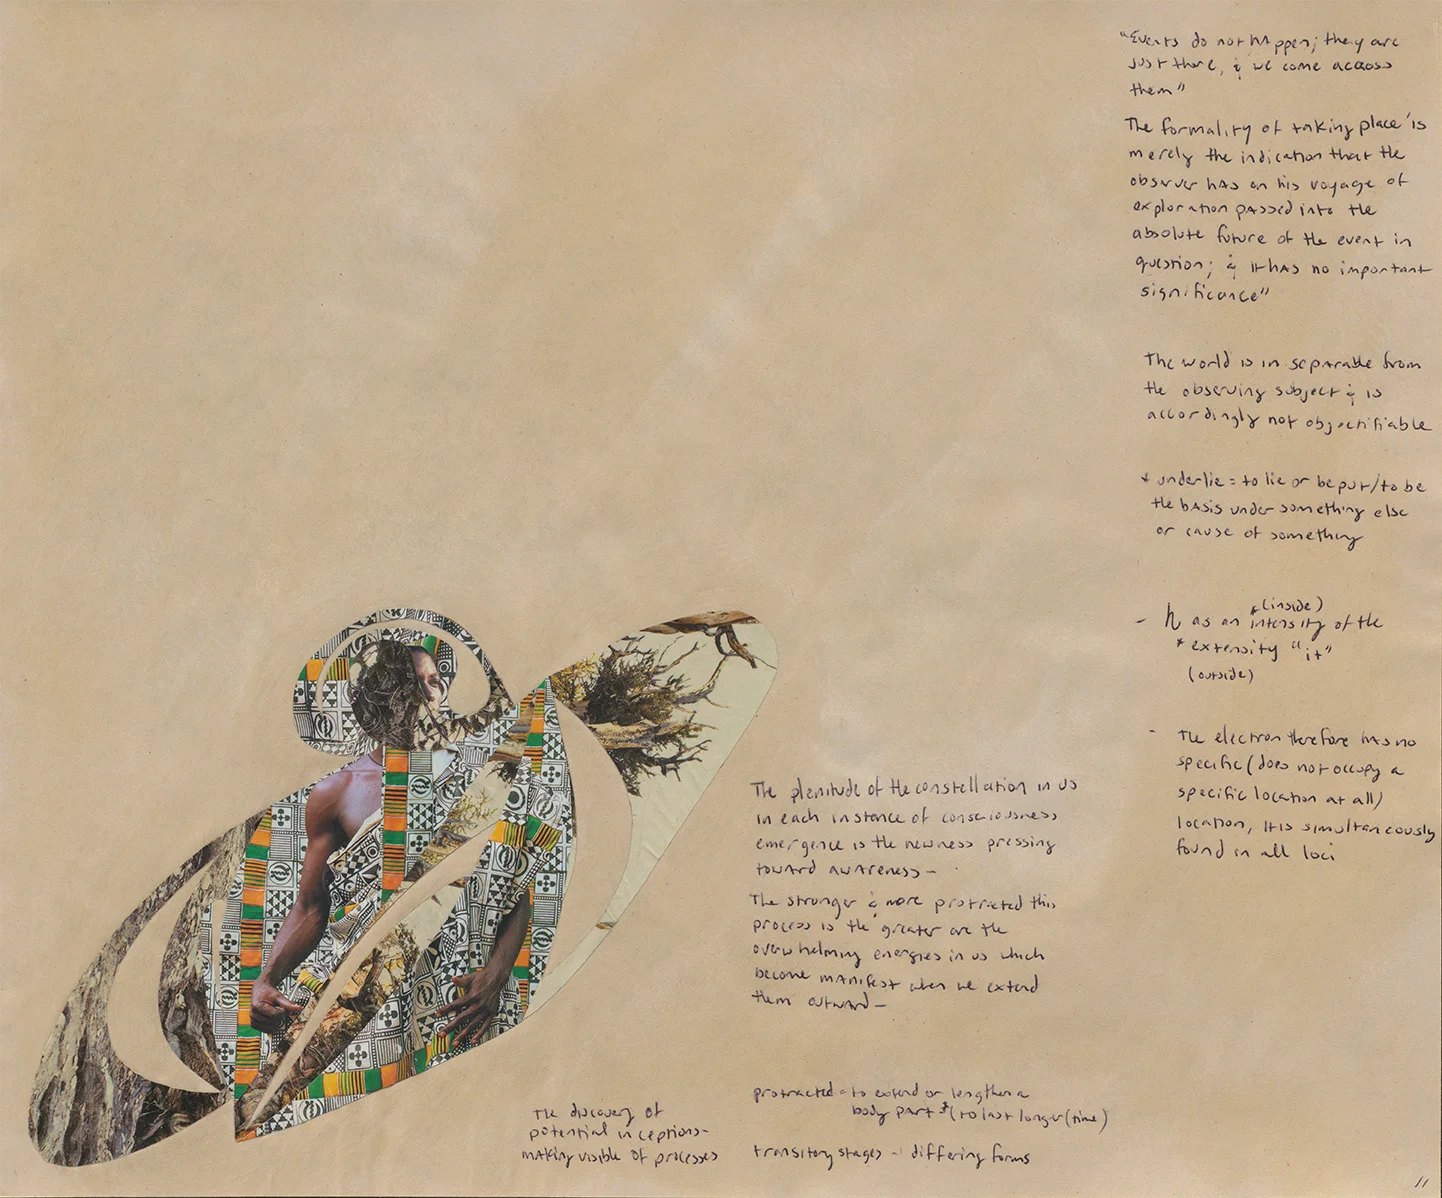 "Events do not happen; they are
just there, & we come across
them"
The formality of taking place' is
merely the indication that the
observer has on his voyage of
exploration passed into the
absolute future of the event in
question; & it has no important
significance"
The world is in separable from
the observing subject & is
accordingly not objectifiable
* underlie = to lie or be put/to be
the basis under something else
or cause of something
(inside)
- h as an *intensity of the
* extensity "it"
(outside)
- The electron therefore has no
specific (does not occupy a
specific location at all)
location, it is simultaneously
found in all loci
The plenitude of the constellation in us
in each instance of consciousness
emergence is the newness pressing
toward awareness -
The stronger & more protracted this
process is the greater are the
overwhelming energies in us which
become manifest when we extend
them outward -
protracted = to extend or lengthen a
body part * (to last longer (time)
transitory stages - differing forms
The discovery of
potential in ceptions -
making visible of processes
11